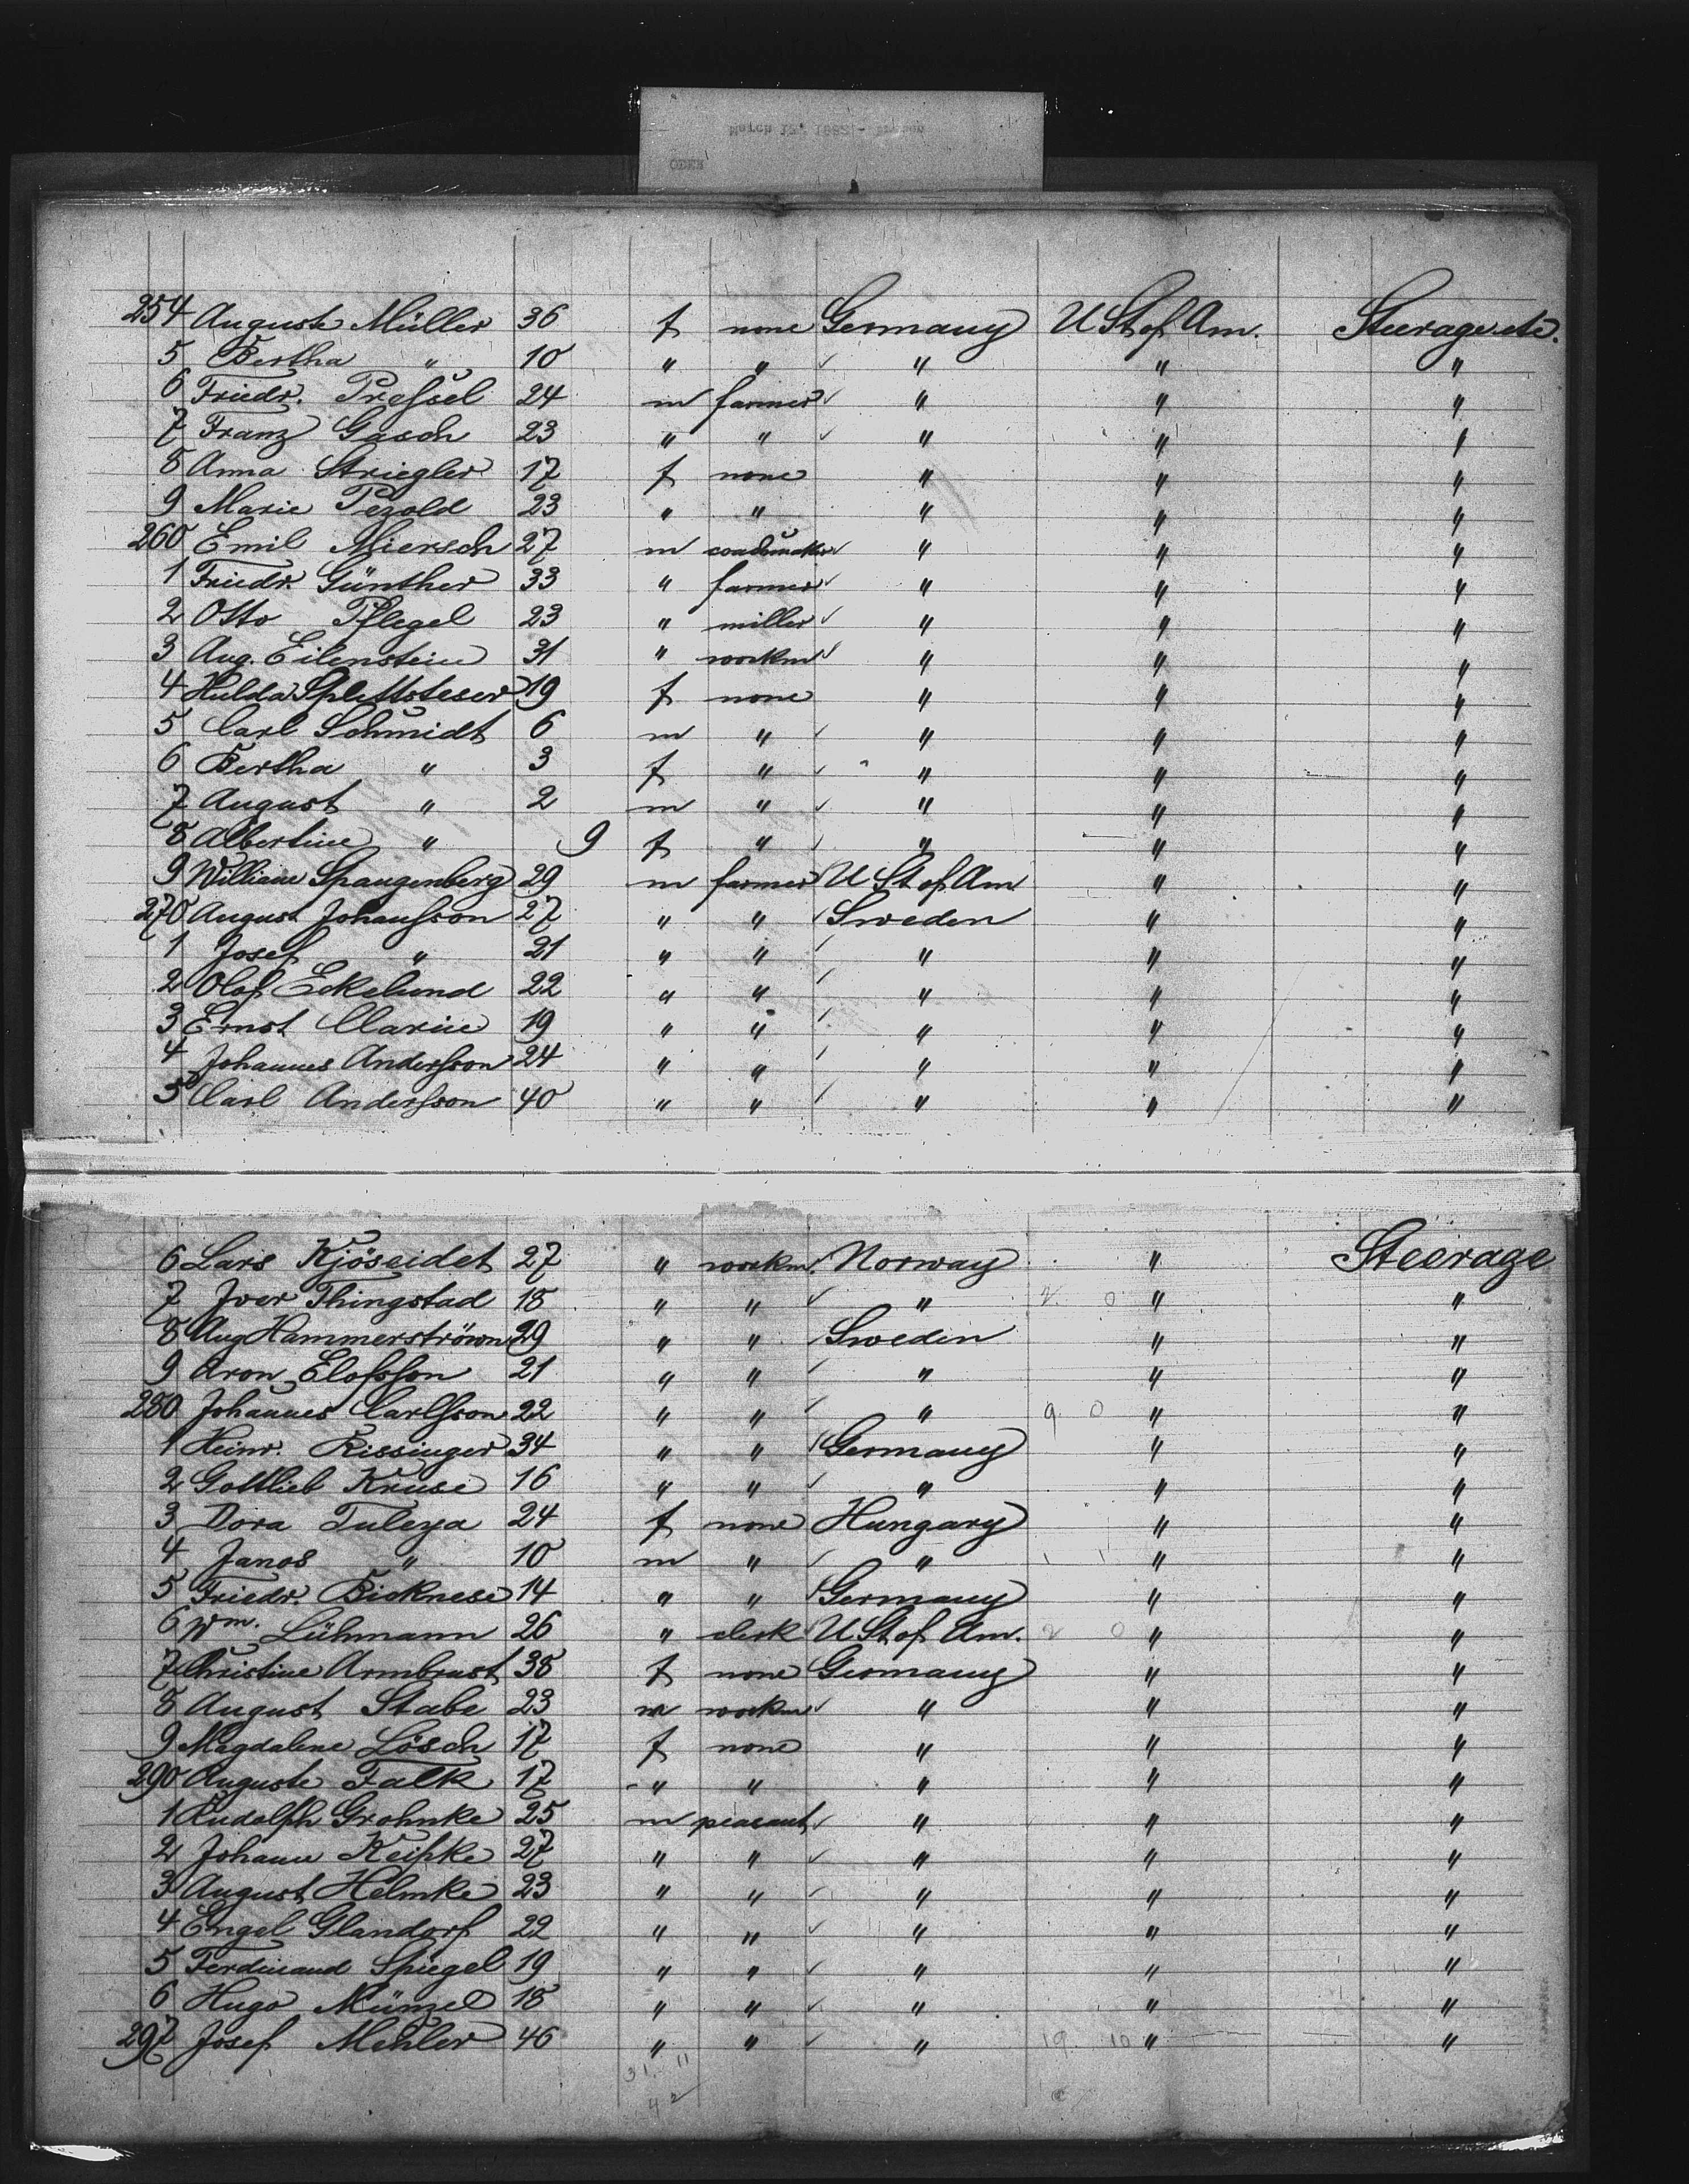 March 17, 1882 -
ODER
254 Auguste Müller 36 f none Germany U St of Am. Steerage etc.
5 Bertha " 10 " " " " "
6 Friedr. Preſsel 24 m farmer " " "
7 Franz Gasch 23 " " " " "
8 Anna Striegler 17 f none " " "
9 Marie Pezold 23 " " " " "
260 Emil Miersch 27 m coachmaker " " "
1 Friedr. Günther 33 " farmer " " "
2 Otto Pflegel 23 " miller " " "
3 Aug. Eilenstein 31 " workm " " "
4 Hulda Splettsteser 19 f none " " "
5 Carl Schmidt 6 m " " " "
6 Bertha " 3 f " " " "
7 August " 2 m " " " "
8 Albertine " 9 f " " " "
9 William Spangenberg 29 m farmer U St of Am " "
270 August Johanſson 27 " " Sweden " "
1 Josef " 21 " " " " "
2 Olof Eckelund 22 " " " " "
3 Ernst Clarin 19 " " " " "
4 Johannes Anderſson 24 " " " " "
5 Carl Anderſson 40 " " " " "
6 Lars Kjöseidet 27 " workm. Norway " Steerage
7 Iver Thingstad 18 " " " " "
8 Aug Hammerströmm 29 " " Sweden " "
9 Aron Elofsſon 21 " " " " "
280 Johannes Carlſson 22 " " " " "
1 Heinr. Rissinger 34 " " Germany " "
2 Gottlieb Kruse 16 " " " " "
3 Dora Tuleya 24 f none Hungary " "
4 Janos " 10 m " " " "
5 Friedr. Bicknese 14 " " Germany " "
6 Wm. Lühmann 26 " clerk U St of Am. " "
7 Christine Armbrust 38 f none Germany " "
8 August Stabe 23 m workm " " "
9 Magdalene Lösch 17 f none " " "
290 Auguste Falk 17 " " " " "
1 Rudolph Grohnke 25 m peasant " " "
2 Johann Keipke 27 " " " " "
3 August Helmke 23 " " " " "
4 Engel Glandorf 22 " " " " "
5 Ferdinand Spiegel 19 " " " " "
6 Hugo Münzel 18 " " " " "
297 Josef Mehler 46 " " " 19 10 " "
31 11
42